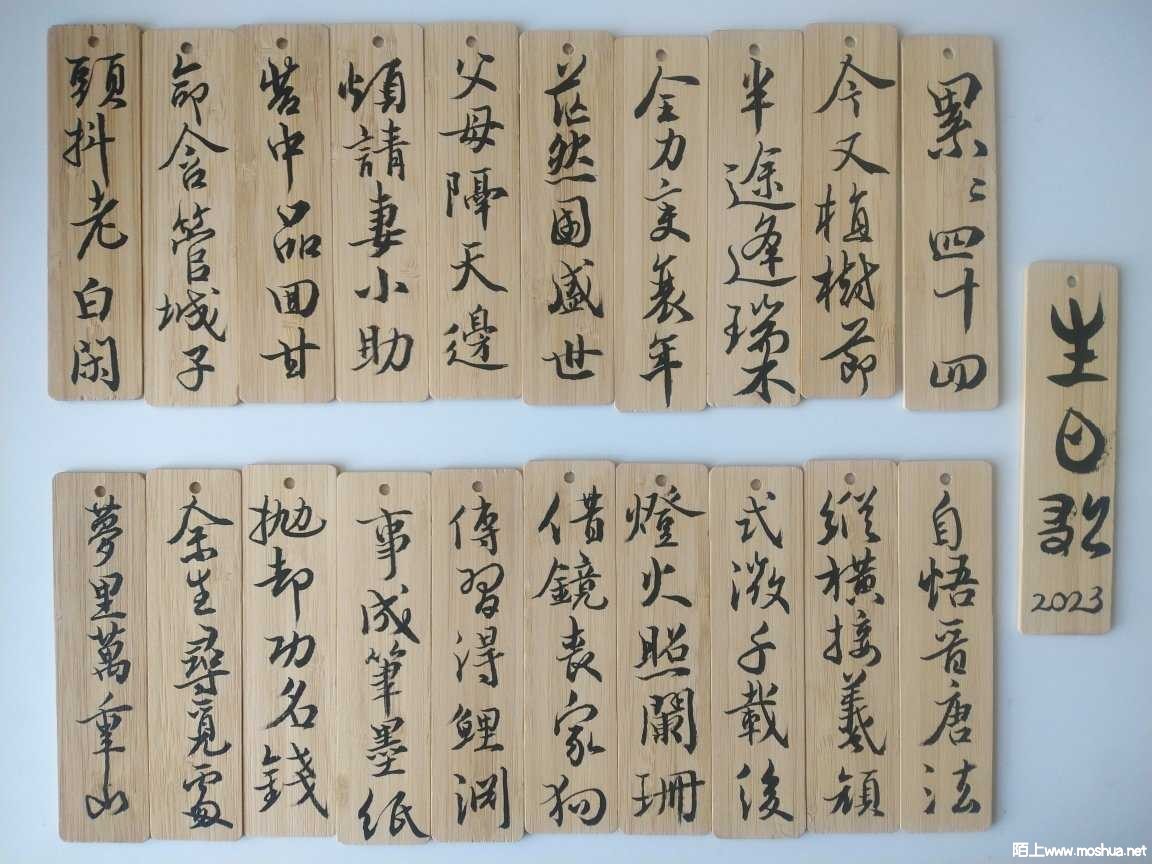 生日歌
2023
累〻四十四
今又植樹節
半途逢瑞木
全力变衰年
茫然國盛世
父母隔天邊
煩請妻小助
苦中品回甘
命含管城子
頭抖老白閑
自悟晋唐法
縱橫接羲顏
式微千載後
燈火照闌珊
借鏡喪家狗
傳習得鯉淵
事成筆墨紙
抛却功名錢
余生尋覓處
夢里萬重山
陌上www.moshua.net